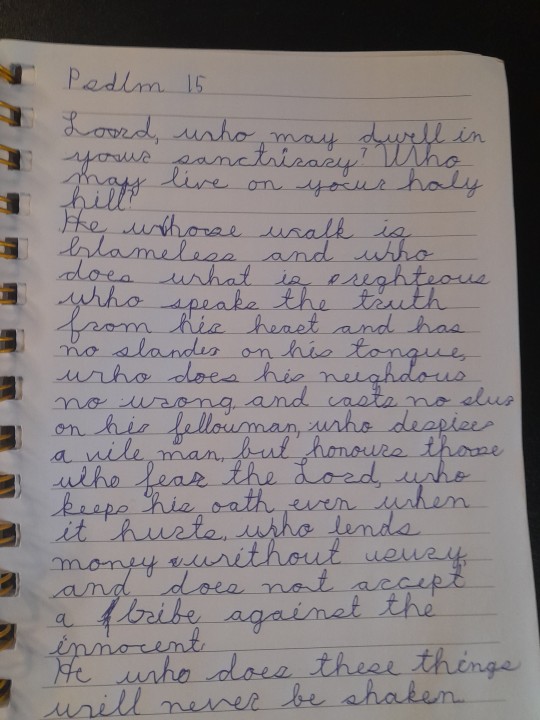 Psalm 15
Lord, who may dwell in
your sanctuary? Who
may live on your holy
hill?
He whose walk is
blameless and who
does what is righteous
who speaks the truth
from his heart and has
no slander on his tongue,
who does his neighbour
no wrong, and casts no slur
on his fellowman, who despises
a vile man, but honours those
who fear the Lord, who
keeps his oath even when
it hurts, who lends
money without usury,
and does not accept
a bribe against the
innocent.
He who does these things
will never be shaken.